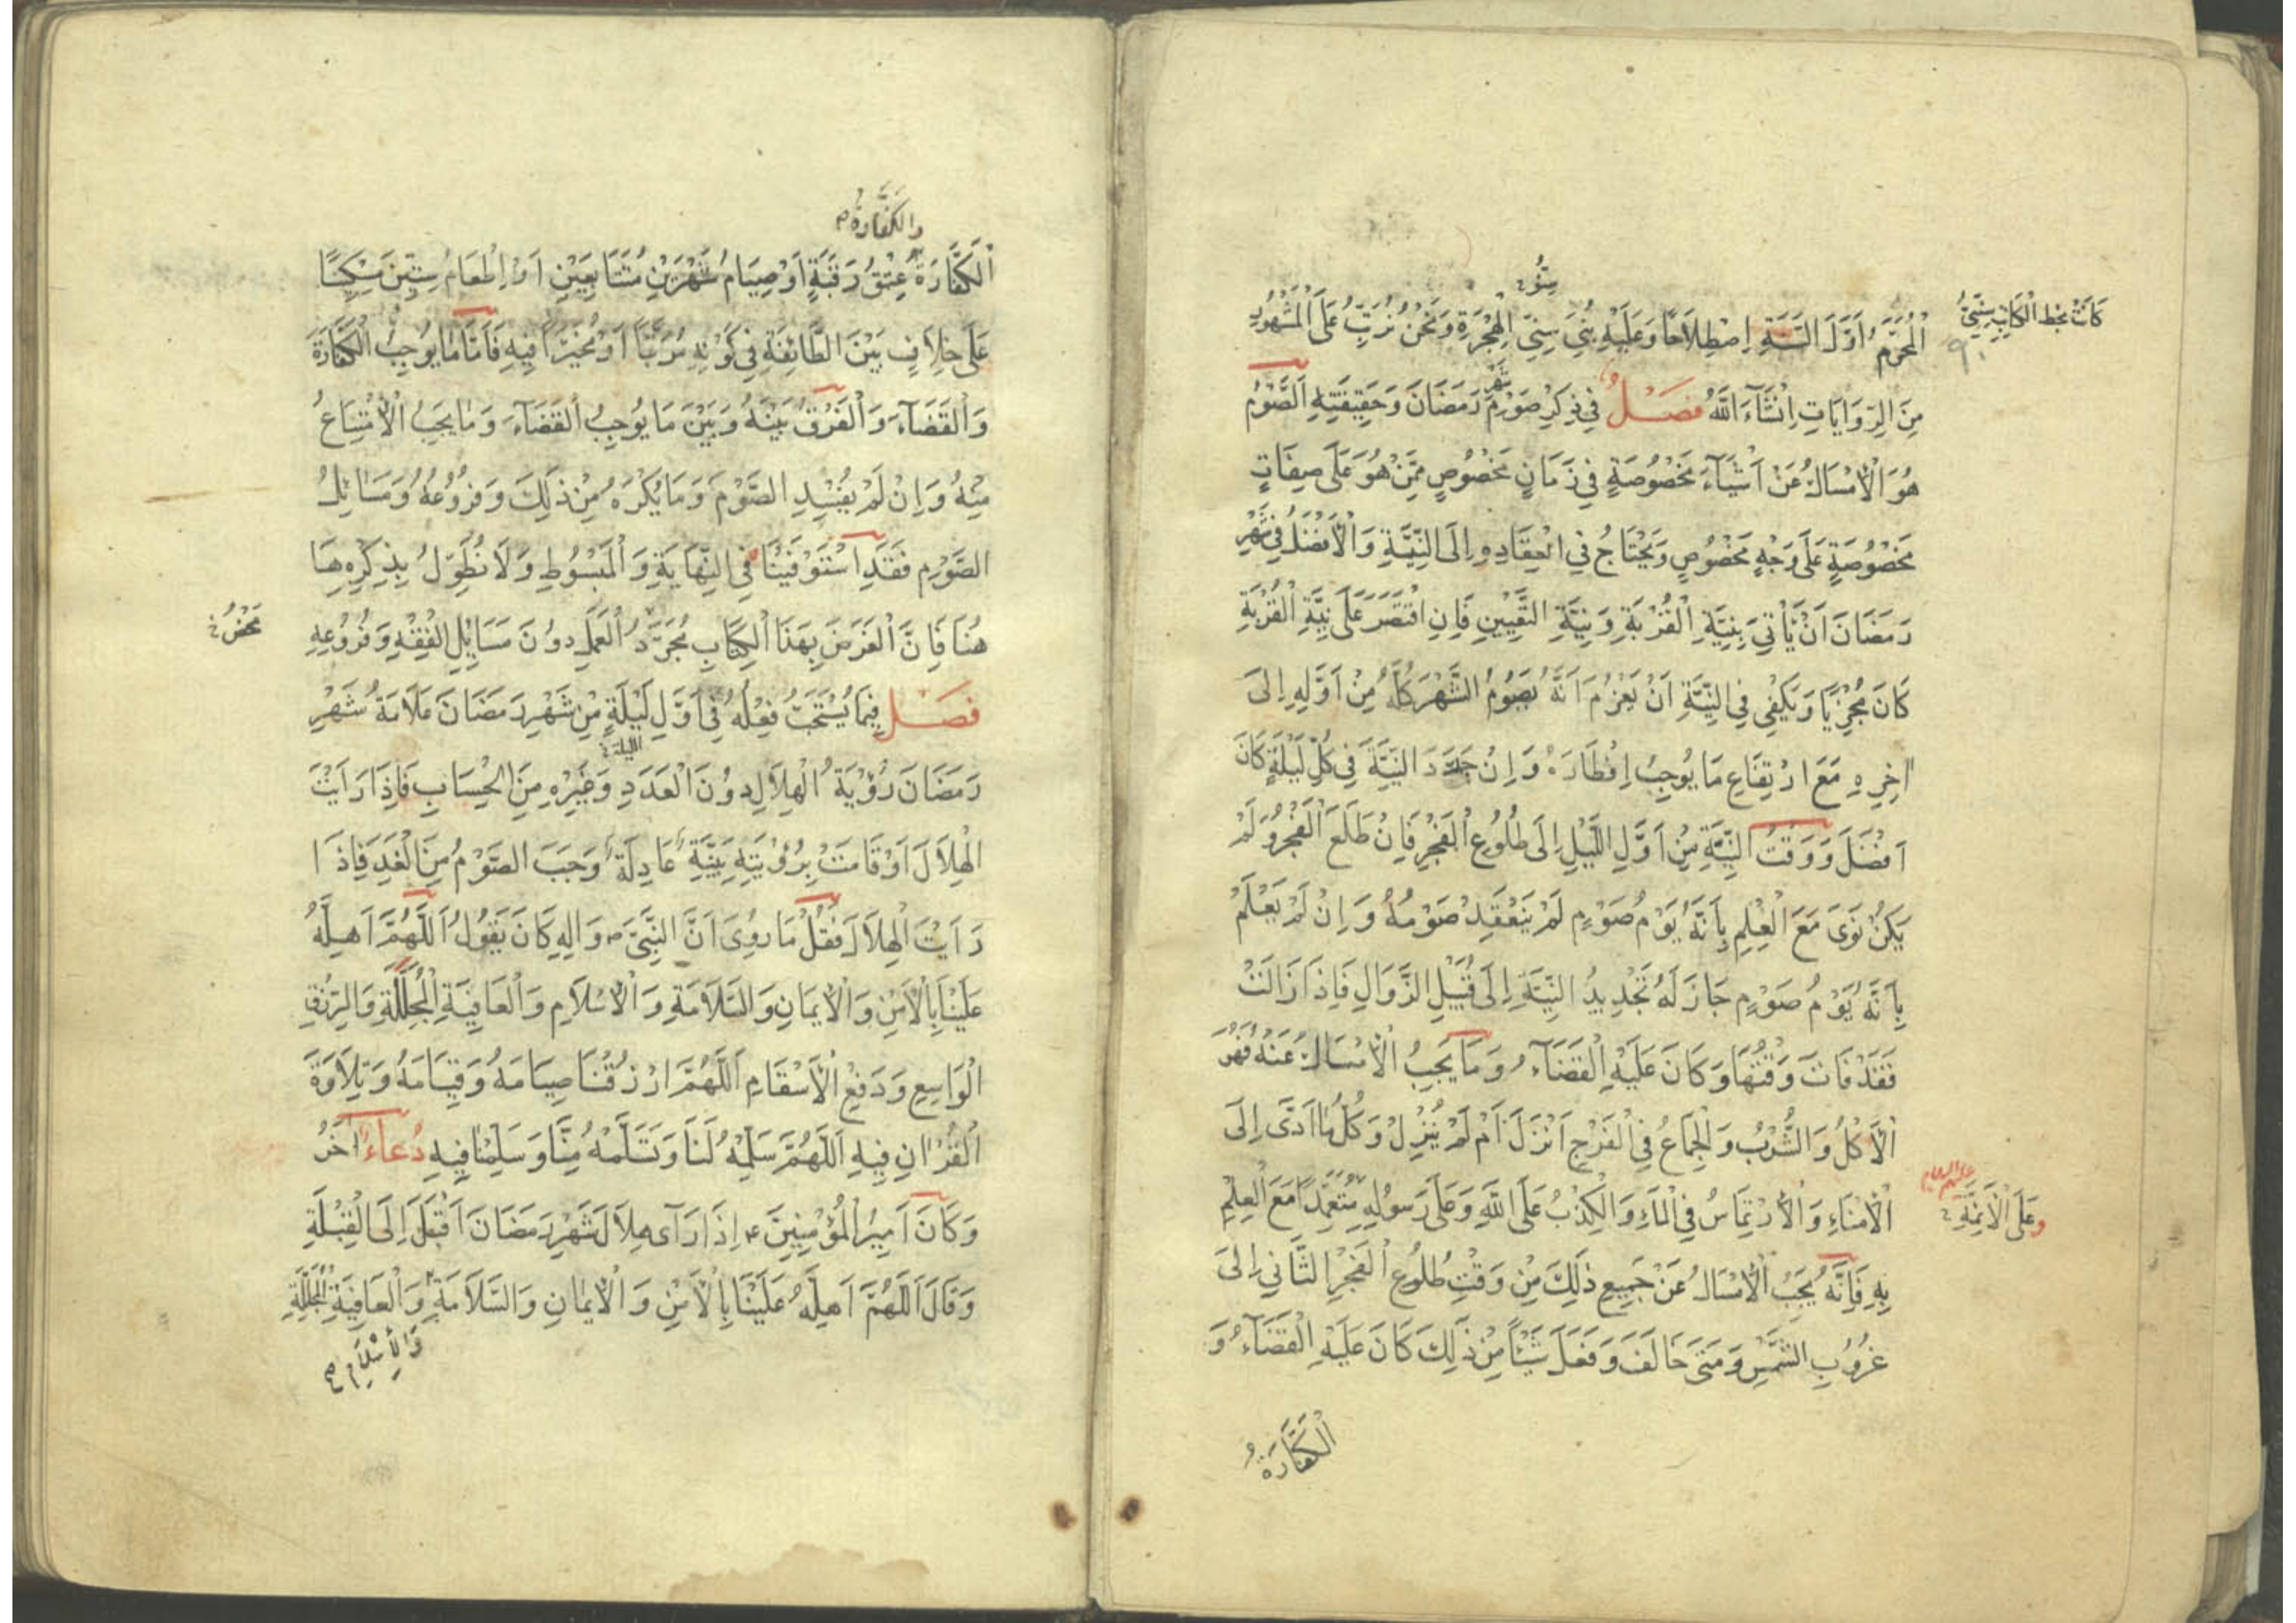 كانت بخط الكاتب سِنِيّ
سِنُو خ
اَلْمُحَرَّمُ اَوَّلَ السَّنَةِ اِصْطِلَاحًا وَعَلَيْهِ بُنِيَ سِنِيّ الْهِجْرَةِ وَنَحْنُ نُرَتِّبُ عَلَى الْمَشْهُورِ
٩٠
شَهْرِ
مِنَ الرِّوَايَاتِ اِنْشَآءَ اللّٰهُ فَصْلٌ فِي ذِكْرِ صَوْمِ رَمَضَانَ وَحَقِيقَتِهِ اَلصَّوْمُ
هُوَ الْاِمْسَاكُ عَنْ اَشْيَآءَ مَخْصُوصَةٍ فِي زَمَانٍ مَخْصُوصٍ مِمَّنْ هُوَ عَلَى صِفَاتٍ
مَخْصُوصَةٍ عَلَى وَجْهٍ مَخْصُوصٍ وَيَحْتَاجُ فِي انْعِقَادِهِ اِلَى النِّيَّةِ وَالْاَفْضَلُ فِي شَهْرِ
رَمَضَانَ اَنْ يَأْتِيَ بِنِيَّةِ الْقُرْبَةِ وَنِيَّةِ التَّعْيِينِ فَاِنِ اقْتَصَرَ عَلَى نِيَّةِ الْقُرْبَةِ
كَانَ مُجْزِيًا وَيَكْفِي فِي النِّيَّةِ اَنْ يَعْزُمَ اَنَّهُ يَصُومُ الشَّهْرَ كُلَّهُ مِنْ اَوَّلِهِ اِلَى
اٰخِرِهِ مَعَ ارْتِفَاعِ مَا يُوجِبُ اِفْطَارَهُ وَاِنْ جَدَّدَ النِّيَّةَ فِي كُلِّ لَيْلَةٍ كَانَ
اَفْضَلَ وَوَقْتُ النِّيَّةِ مِنْ اَوَّلِ اللَّيْلِ اِلَى طُلُوعِ الْفَجْرِ فَاِنْ طَلَعَ الْفَجْرُ وَلَمْ
يَكُنْ نَوَى مَعَ الْعِلْمِ بِاَنَّهُ يَوْمُ صَوْمٍ لَمْ يَنْعَقِدْ صَوْمُهُ وَاِنْ لَمْ يَعْلَمْ
بِاَنَّهُ يَوْمُ صَوْمٍ جَازَ لَهُ تَجْدِيدُ النِّيَّةِ اِلَى قُبَيْلِ الزَّوَالِ فَاِذَا زَالَتْ
فَقَدْ فَاتَ وَقْتُهَا وَكَانَ عَلَيْهِ الْقَضَآءُ وَمَا يَجِبُ الْاِمْسَاكُ عَنْهُ فَهُوَ
اَلْاَكْلُ وَالشُّرْبُ وَالْجِمَاعُ فِي الْفَرْجِ اَنْزَلَ اَمْ لَمْ يُنْزِلْ وَكُلُّ مَا اَدَّى اِلَى
عليهم السلام
وَعَلَى الْاَئِمَّةِ خ
الْاِمْنَاءِ وَالْاِرْتِمَاسُ فِي الْمَاءِ وَالْكِذْبُ عَلَى اللّٰهِ وَعَلَى رَسُولِهِ مُتَعَمِّدًا مَعَ الْعِلْمِ
بِهِ فَاِنَّهُ يَجِبُ الْاِمْسَاكُ عَنْ جَمِيعِ ذٰلِكَ مِنْ وَقْتِ طُلُوعِ الْفَجْرِ الثَّانِي اِلَى
غُرُوبِ الشَّمْسِ وَمَتَى خَالَفَ وَفَعَلَ شَيْئًا مِنْ ذٰلِكَ كَانَ عَلَيْهِ الْقَضَآءُ وَ
الْكَفَّارَةُ
وَالْكَفَّارَةُ م
اَلْكَفَّارَةُ عِتْقُ رَقَبَةٍ اَوْ صِيَامُ شَهْرَيْنِ مُتَتَابِعَيْنِ اَوْ اِطْعَامُ سِتِّينَ مِسْكِينًا
عَلَى خِلَافٍ بَيْنَ الطَّائِفَةِ فِي كَوْنِهِ مُرَتَّبًا اَوْ مُخَيَّرًا فِيهِ فَاَمَّا مَا يُوجِبُ الْكَفَّارَةَ
وَالْقَضَآءَ وَالْفَرْقُ بَيْنَهُ وَبَيْنَ مَا يُوجِبُ الْقَضَآءَ وَمَا يَجِبُ الْاِمْتِنَاعُ
مِنْهُ وَاِنْ لَمْ يُفْسِدِ الصَّوْمَ وَمَا يُكْرَهُ مِنْ ذٰلِكَ وَفُرُوعُهُ وَمَسَائِلُ
الصَّوْمِ فَقَدِ اسْتَوْفَيْنَا فِي النِّهَايَةِ وَالْمَبْسُوطِ وَلَا نُطَوِّلُ بِذِكْرِهِ هَا
مَحْضُ خ
هُنَا فَاِنَّ الْغَرَضَ بِهَذَا الْكِتَابِ مُجَرَّدُ الْعَمَلِ دُونَ مَسَائِلِ الْفِقْهِ وَفُرُوعِهِ
فَصْل فِيمَا يُسْتَحَبُّ فِعْلُهُ فِي اَوَّلِ لَيْلَةٍ مِنْ شَهْرِ رَمَضَانَ عَلَامَةُ شَهْرِ
رَمَضَانَ رُؤْيَةُ الْهِلَالِ دُونَ الْعَدَدِ وَغَيْرِهِ مِنَ الْحِسَابِ فَاِذَا رَاَيْتَ
الْهِلَالَ اَوْ قَامَتْ بِرُؤْيَتِهِ بَيِّنَةٌ عَادِلَةٌ وَجَبَ الصَّوْمُ مِنَ الْغَدِ فَاِذَا
رَاَيْتَ الْهِلَالَ فَقُلْ مَا رُوِيَ اَنَّ النَّبِيَّ ص وَاٰلِهِ كَانَ يَقُولُ اَللّٰهُمَّ اَهِلَّهُ
عَلَيْنَا بِالْاَمْنِ وَالْاِيمَانِ وَالسَّلَامَةِ وَالْاِسْلَامِ وَالْعَافِيَةِ الْمُجَلَّلَةِ وَالرِّزْقِ
الْوَاسِعِ وَدَفْعِ الْاَسْقَامِ اَللّٰهُمَّ ارْزُقْنَا صِيَامَهُ وَقِيَامَهُ وَتِلَاوَةَ
الْقُرْاٰنِ فِيهِ اَللّٰهُمَّ سَلِّمْهُ لَنَا وَتَسَلَّمْهُ مِنَّا وَسَلِّمْنَا فِيهِ دُعَاءٌ اٰخَرُ
وَكَانَ اَمِيرُ الْمُؤْمِنِينَ ع اِذَا رَآى هِلَالَ شَهْرِ رَمَضَانَ اَقْبَلَ اِلَى الْقِبْلَةِ
وَقَالَ اَللّٰهُمَّ اَهِلَّهُ عَلَيْنَا بِالْاَمْنِ وَالْاِيمَانِ وَالسَّلَامَةِ وَالْعَافِيَةِ الْمُجَلَّلَةِ
وَالْاِسْلَامِ صح